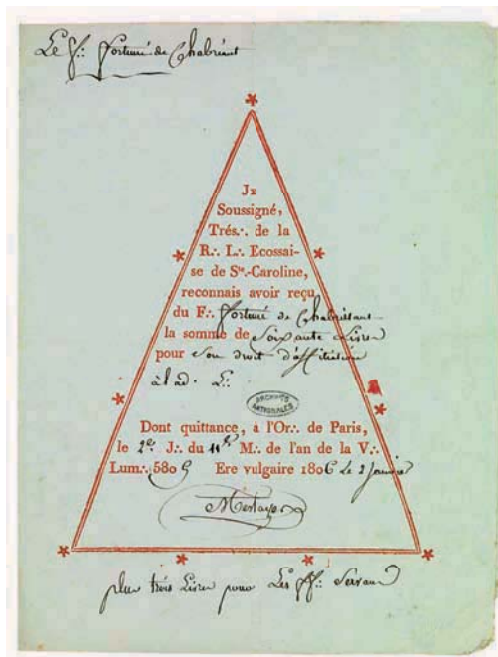 Le f∴ fortuné de Chabrisant
Je
Soussigné,
Trés∴ de la
R∴ L∴ Ecossai-
se de Ste.-Caroline,
reconnais avoir reçu
du F∴ fortuné de Chabrisant
la somme de Soixante Livres
pour Son droit d'affiliation
à lad. L∴
ARCHIVES
NATIONALES
Dont quittance, a l'Or∴ de Paris,
le 2e. J∴ du 11e M∴ de l'an de la V∴
Lum∴ 5805 Ere vulgaire 1806 Le 2 Janvier
plus trois Livres pour Les ff∴ Servans